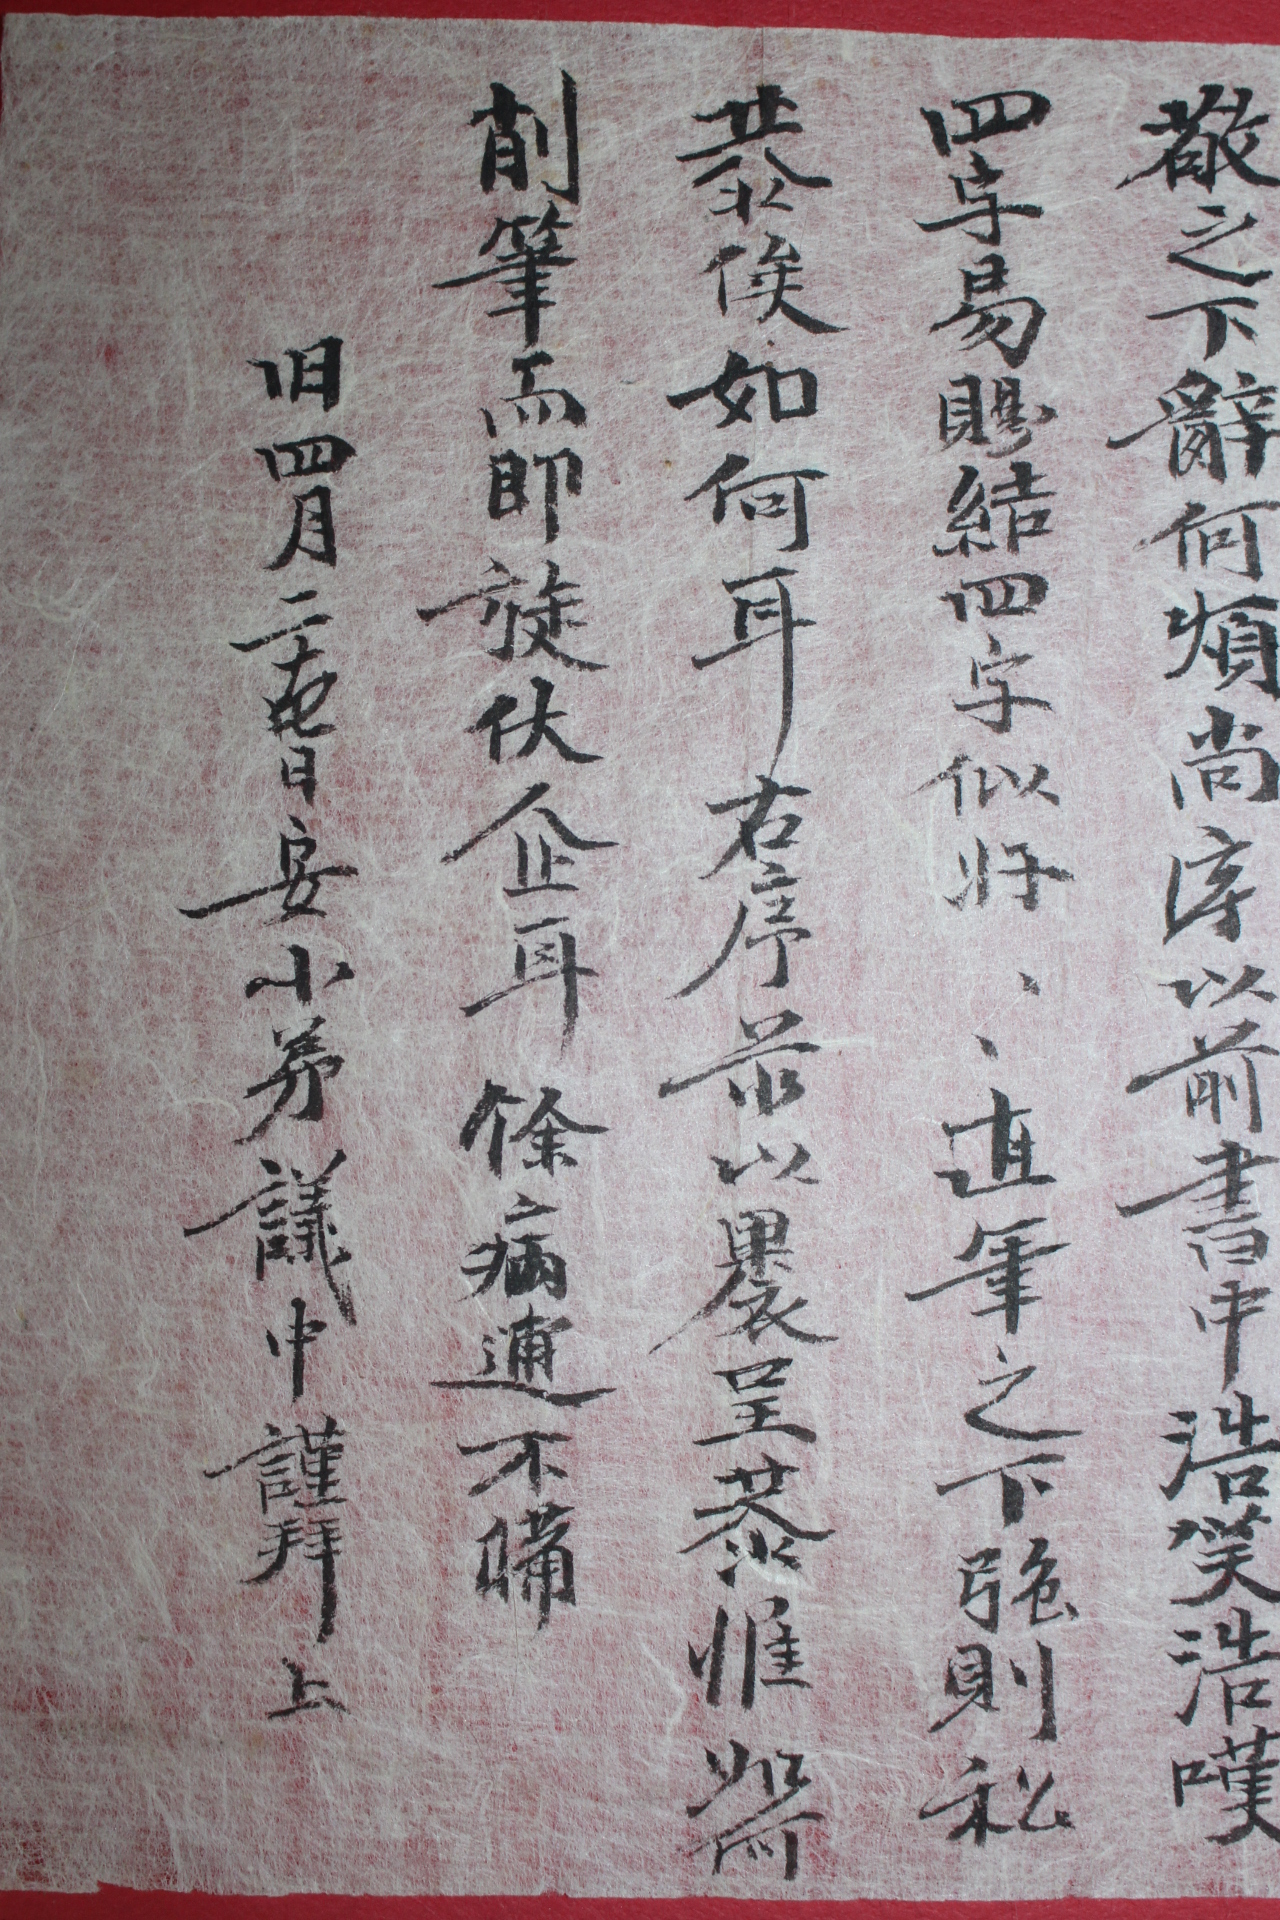 敬之下辭何煩尚序以前書中浩笑浩嘆
四字易賜結四字似好、、直筆之下強則私
恭俟如何耳右序並以裹呈恭惟如何
削筆而即旋伏企耳餘病逋不備
旧四月二十七日安小弟議中謹拜上